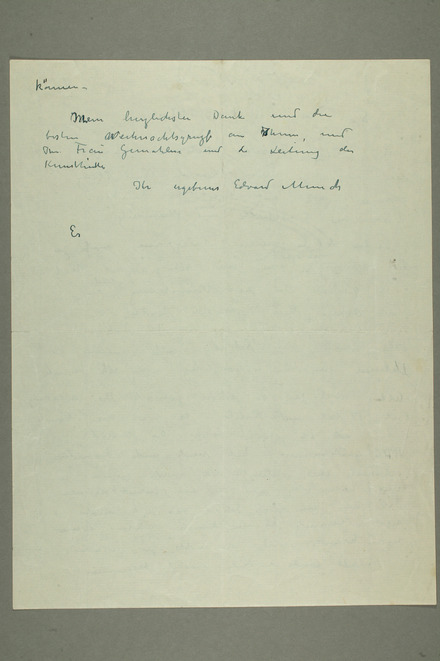 können –
Mein herzlichster Dank und die
besten Weihnachtsgrüsse an Ihnen, und
Frau Gemahlin und die Leitung der
Ihr ergebener Edvard Munch
Es